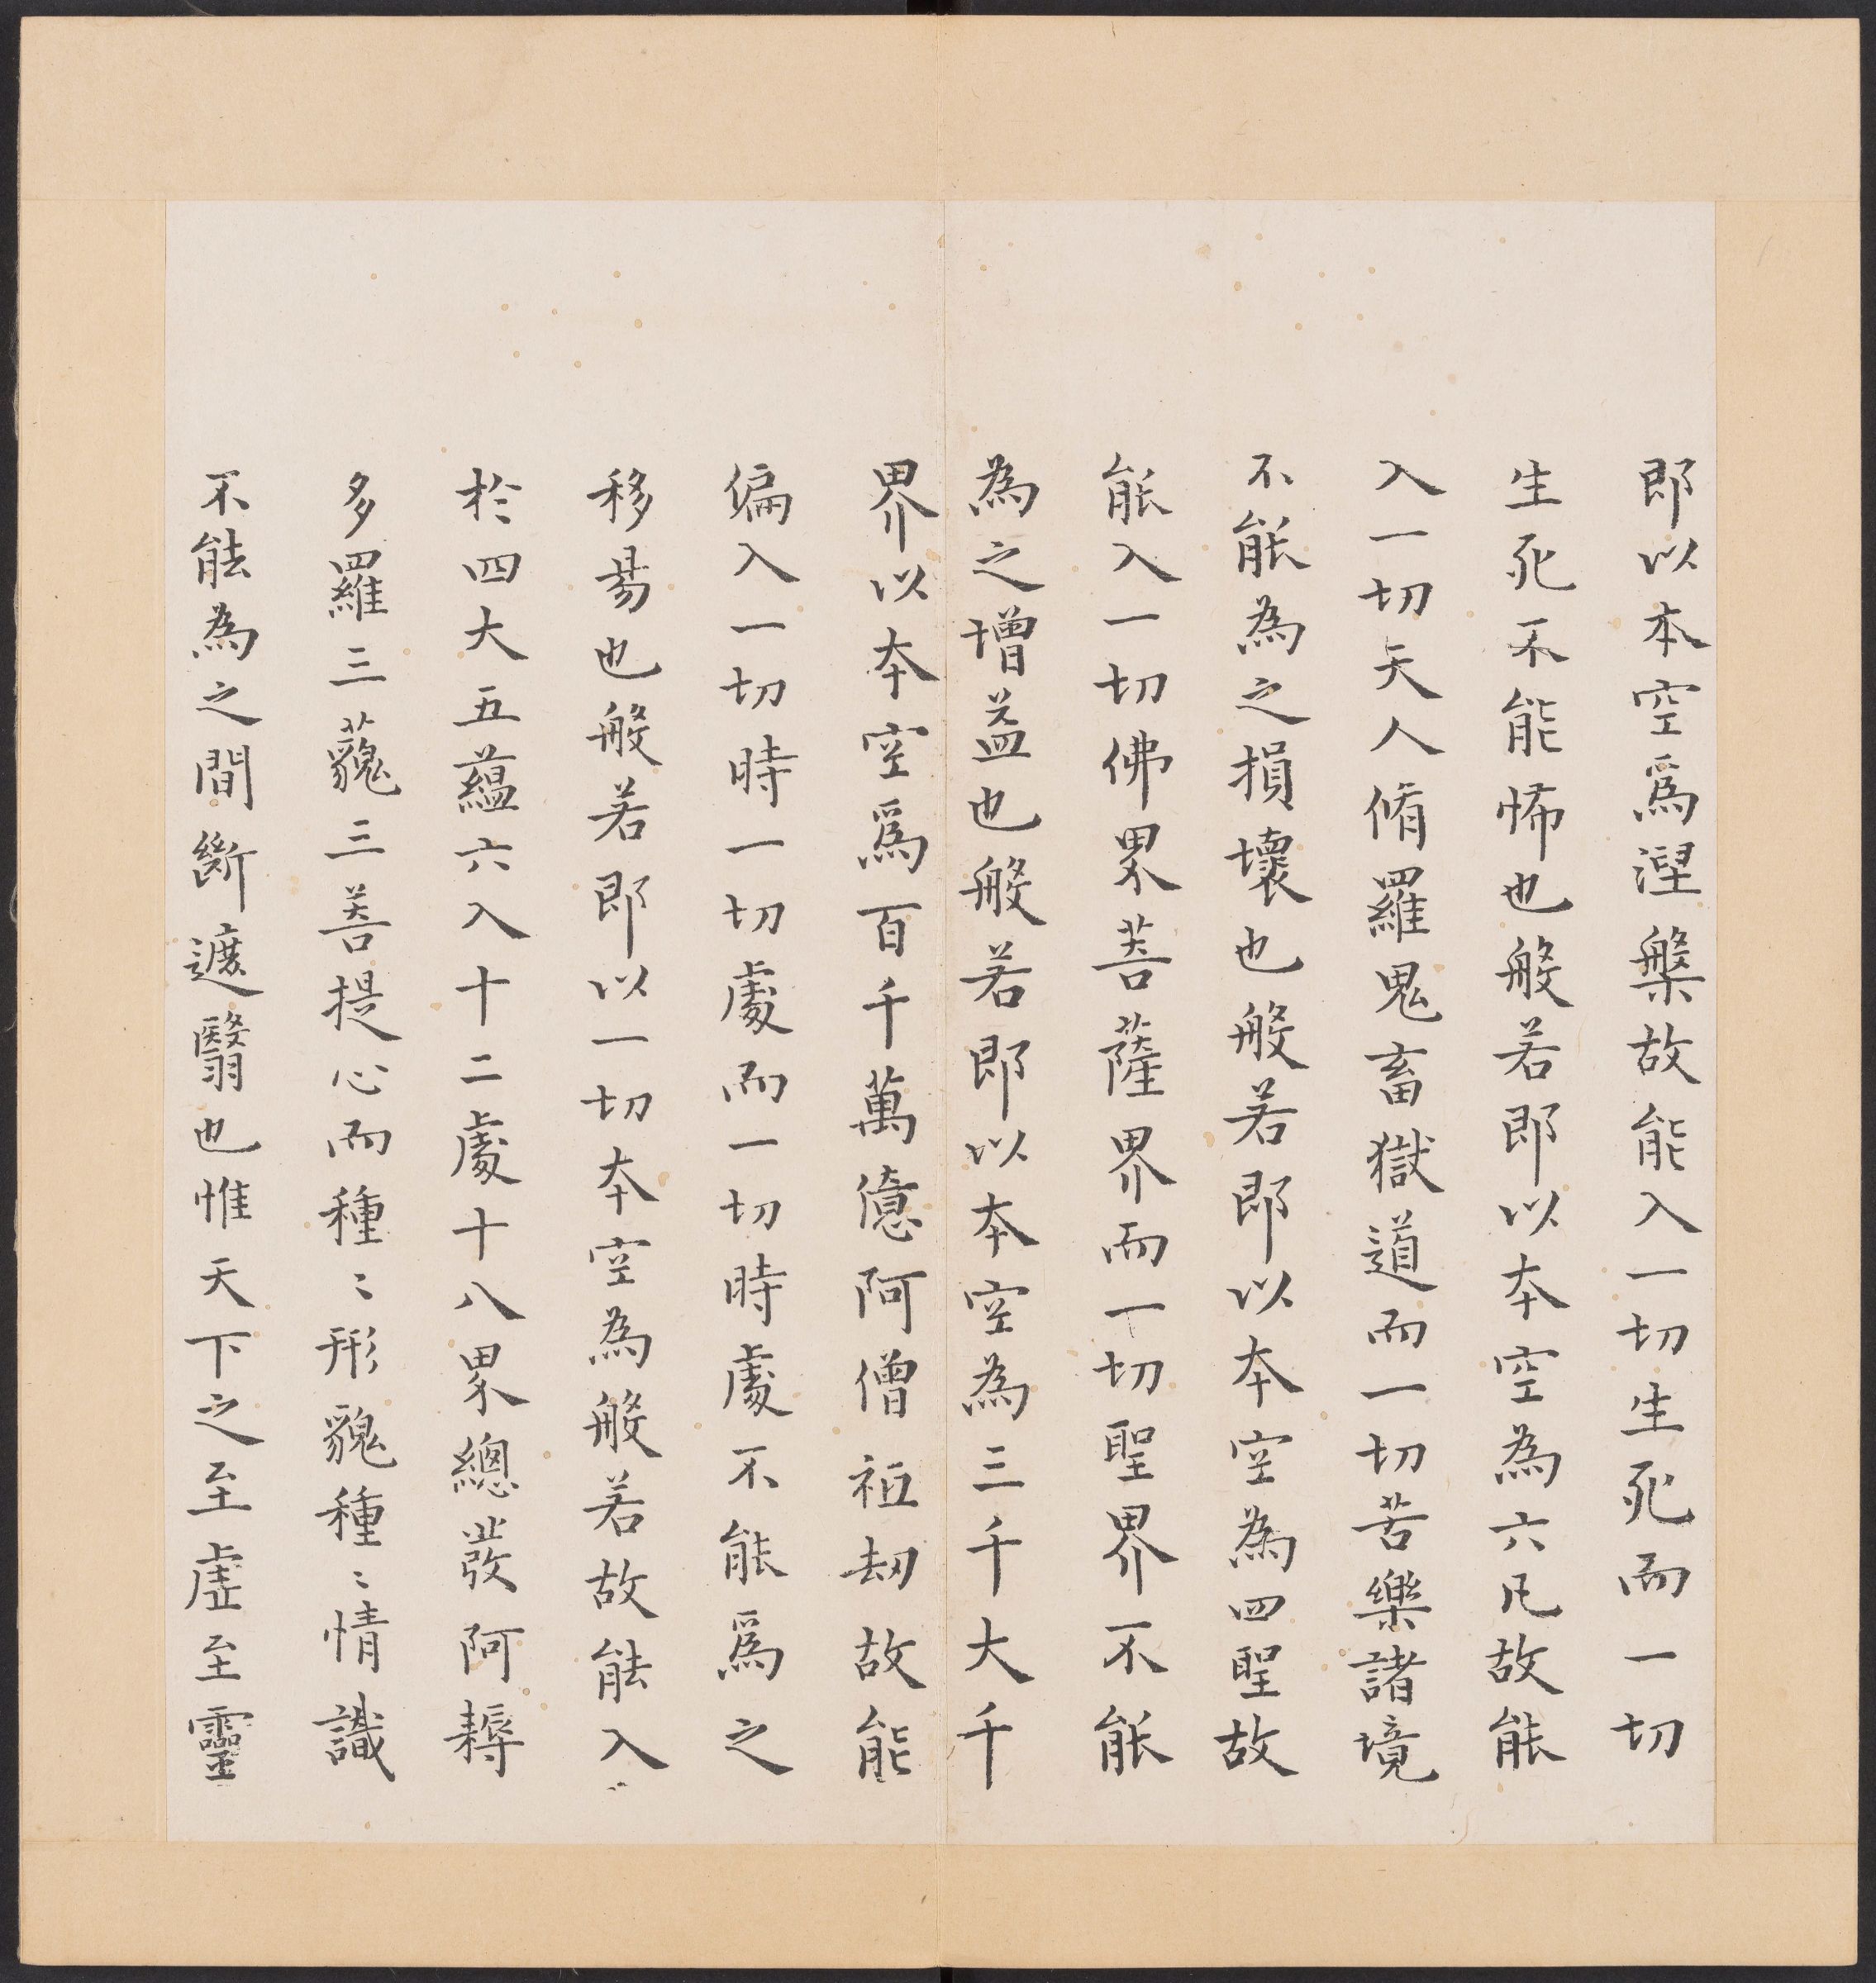 即以本空爲涅槃故能入一切生死而一切
生死不能怖也般若即以本空為六凡故能
入一切天人脩羅鬼畜獄道而一切苦樂諸境
不能為之損壞也般若即以本空為四聖故
能入一切佛界菩薩界而一切聖界不能
為之增益也般若即以本空為三千大千
界以本空爲百千萬億阿僧祇劫故能
徧入一切時一切處而一切時處不能爲之
移易也般若即以一切本空為般若故能入
於四大五蘊六入十二處十八界總發阿耨
多羅三藐三菩提心而種〻形貌種〻情識
不能為之間斷遮翳也惟天下之至虛至靈